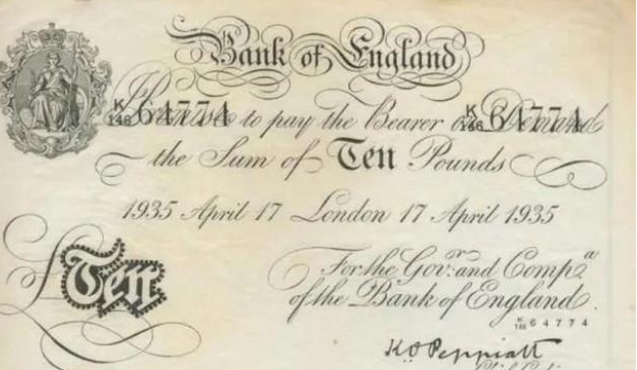 Bank of England
K/146 64774 I Promise to pay the Bearer on Demand K/146 64774
the Sum of Ten Pounds
1935 April 17 London 17 April 1935
For the Gov.r and Comp.a
£Ten
of the Bank of England.
K/146 64774
K O Peppiatt